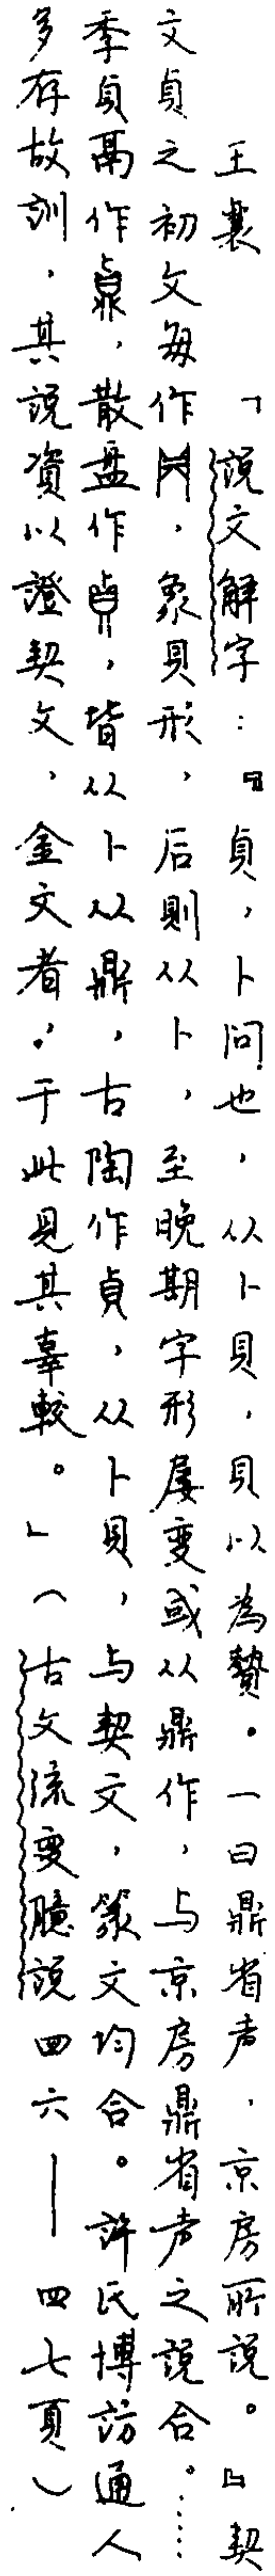 王襄 「説文解字：『貞，卜問也，从卜貝，貝以為贄。一曰鼎省声，京房所説。』契
文貞之初文每作，象貝形，后則从卜，至晚期字形屡变或从鼎作，与京房鼎省声之説合。……
季貞鬲作，散盘作，皆从卜从鼎，古陶作貞，从卜貝，与契文，篆文均合。許氏博訪通人
多存故訓，其説資以證契文，金文者，于此見其辜較。」（古文流变臆説四六——四七頁）